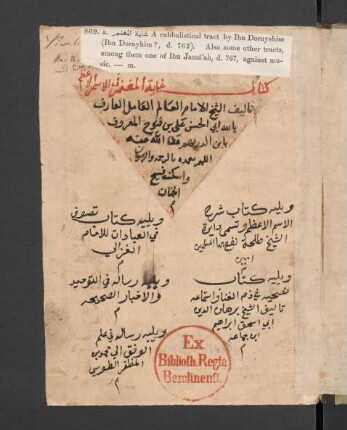 869. a. غاية المغنم A cabbalistical tract by Ibn Dorayhim
(Ibn Dorayhim?, d. 762). Also some other tracts,
among them one of Ibn Jamâ'ah, d. 767, against mu-
sic. — m.
كتاب غاية المغنم في الاسم الاعظم
تاليف الشيخ الامام العالم العامل العارف
بالله ابي الحسن علي بن فتوح المعروف
بابن الدريهم عفا الله عنه
اللهم بمده بالرحمة والرضوان
واسكنه فسيح
الجنان
م
ويليه كتاب شرح
الاسم الاعظم وتسمى دايرة
الشيخ طلحة نفع المسلمين
امين
ويليه كتاب تصوف
في العبادات للامام
الغزالي
م
ويليه كتاب
نصيحة في ذم الغنا واستماعه
تاليف الشيخ برهان الدين
ابي اسحق ابراهيم
ابن جماعه
م
ويليه رساله في التوحيد
والاخبار الصحيحه
م
ويليه رساله في علم
الوفق الى
المظفر الطوسي
م
Ex
Biblioth. Regia
Berolinensi.